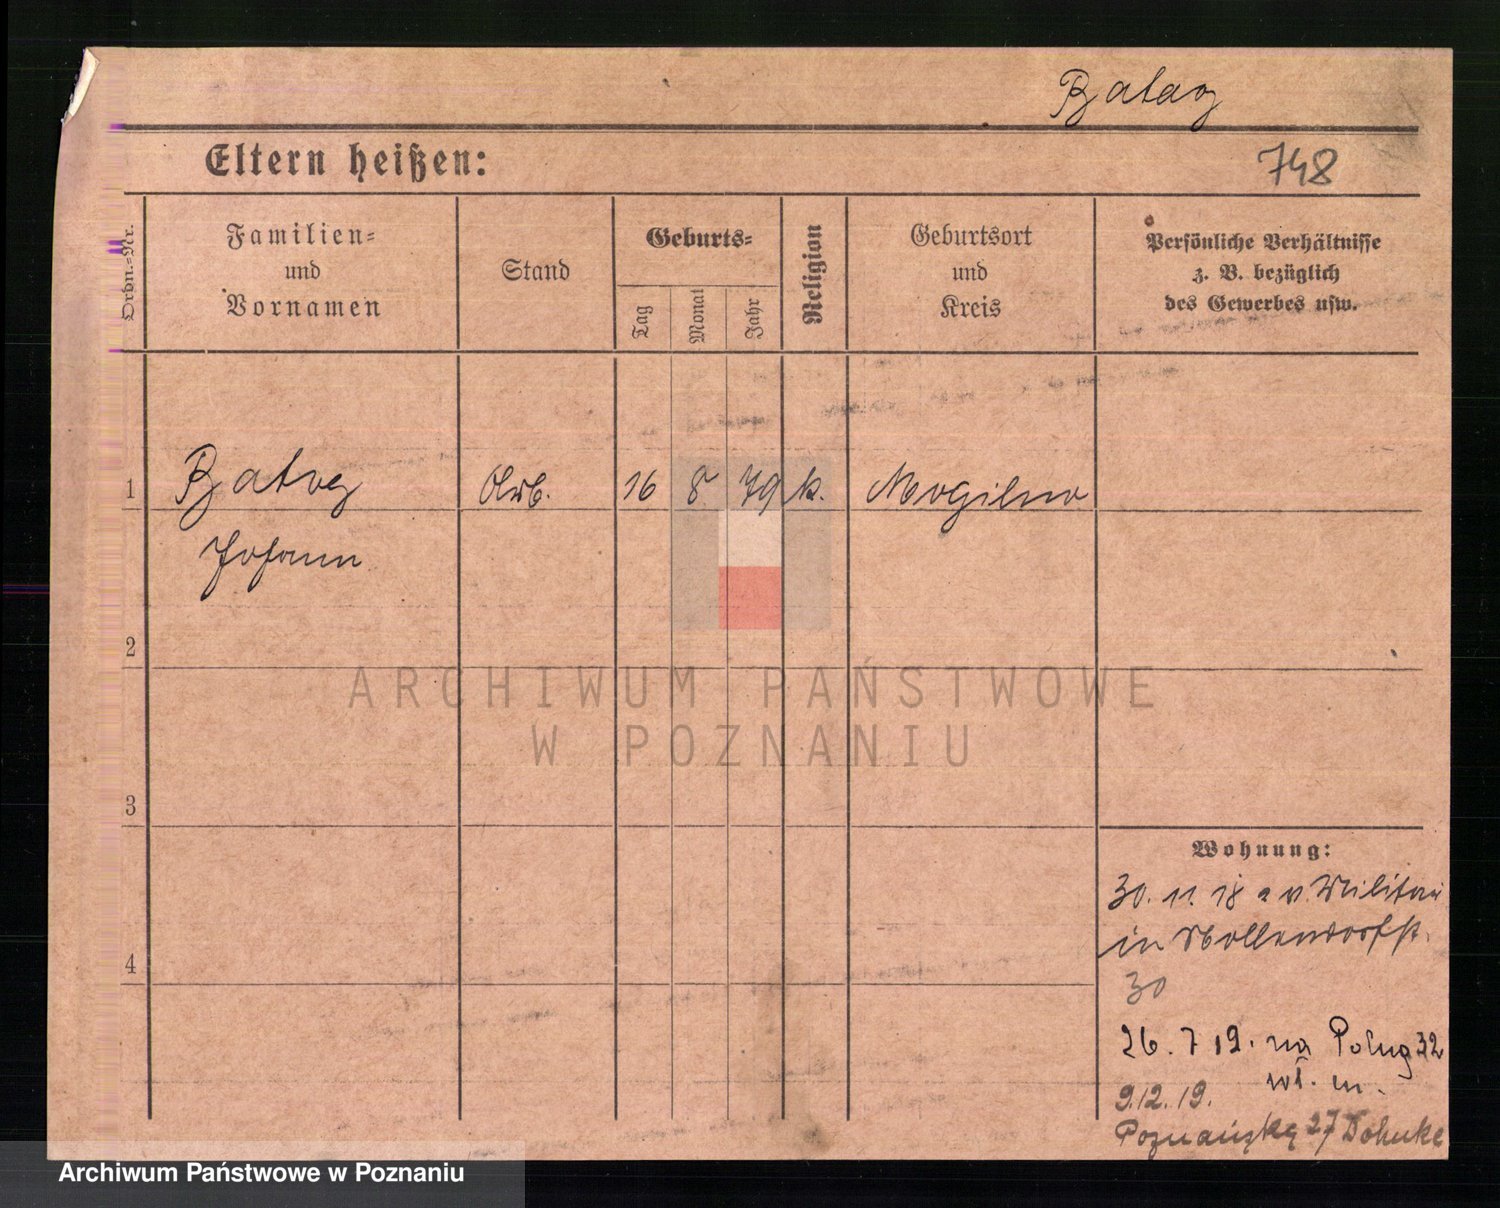 Batog
Eltern heißen:
748
Ordn.-Nr.
Familien-
und
Vornamen
Stand
Geburts-
Tag
Monat
Jahr
Religion
Geburtsort
und
Kreis
Persönliche Verhältnisse
z. B. bezüglich
des Gewerbes usw.
1
Batog
Arb.
16
8
79
k.
Mogilno
Johann
2
ARCHIWUM PAŃSTWOWE
W POZNANIU
3
Wohnung:
30. 11. 18 v. Militär
in Nollendorfst.
30
4
26. 7 19. na 32
wł. m.
9.12.19.
Poznańską 27
Archiwum Państwowe w Poznaniu